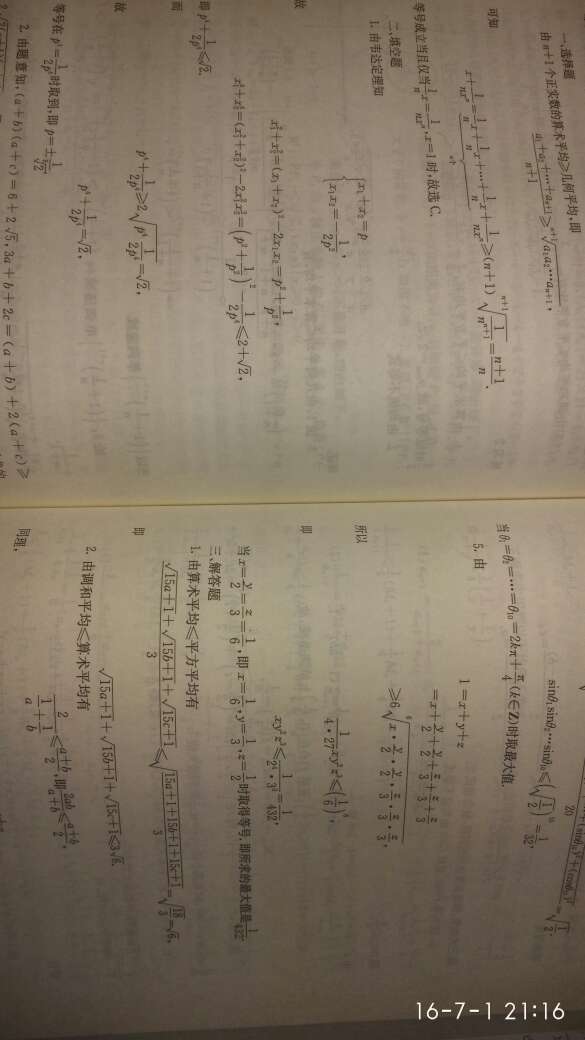 一、选择题
由 n+1 个正实数的算术平均≥几何平均,即
(a₁+a₂+…+aₙ₊₁)/(n+1) ≥ ⁿ⁺¹√(a₁a₂…aₙ₊₁),
可知
x+1/(nxⁿ)=1/n x+1/n x+…+1/n x+1/(nxⁿ)≥(n+1) ⁿ⁺¹√(1/nⁿ⁺¹)=(n+1)/n.
n个
等号成立当且仅当 1/n x=1/(nxⁿ),x=1 时,故选 C.
二、填空题
1. 由韦达定理知
{x₁+x₂=p
x₁x₂=-1/(2p²),
故
x₁²+x₂²=(x₁+x₂)²-2x₁x₂=p²+1/p²,
x₁⁴+x₂⁴=(x₁²+x₂²)²-2x₁²x₂²=(p²+1/p²)²-1/(2p⁴)≤2+√2,
即 p⁴+1/(2p⁴)≤√2.
而
p⁴+1/(2p⁴)≥2√(p⁴·1/(2p⁴))=√2,
故
p⁴+1/(2p⁴)=√2,
等号在 p⁴=1/(2p⁴)时取到,即
2. 由题意知,(a+b)(a+c)=6+2√5,3a+b+2c=(a+b)+2(a+c)≥
sinθ₁sinθ₂…sinθ₁₀≤(√(1/2))¹⁰=1/32,
当 θ₁=θ₂=…=θ₁₀=2kπ+π/4(k∈Z)时取最大值.
5. 由
1=x+y+z
=x+y/2+y/2+z/3+z/3+z/3
≥6 ⁶√(x·y/2·y/2·z/3·z/3·z/3),
所以
1/(4·27)xy²z³≤(1/6)⁶,
即
xy²z³≤1/(2⁴·3³)=1/432,
当 x=y/2=z/3=1/6,即 x=1/6,y=1/3,z=1/2时取得等号.即所求的最大值是1/432.
三、解答题
1. 由算术平均≤平方平均有
(√(15a+1)+√(15b+1)+√(15c+1))/3≤√((15a+1+15b+1+15c+1)/3)=√(18/3)=√6,
即
√(15a+1)+√(15b+1)+√(15c+1)≤3√6.
2. 由调和平均≤算术平均有
2/(1/a+1/b)≤(a+b)/2,即2ab/(a+b)≤(a+b)/2,
同理,